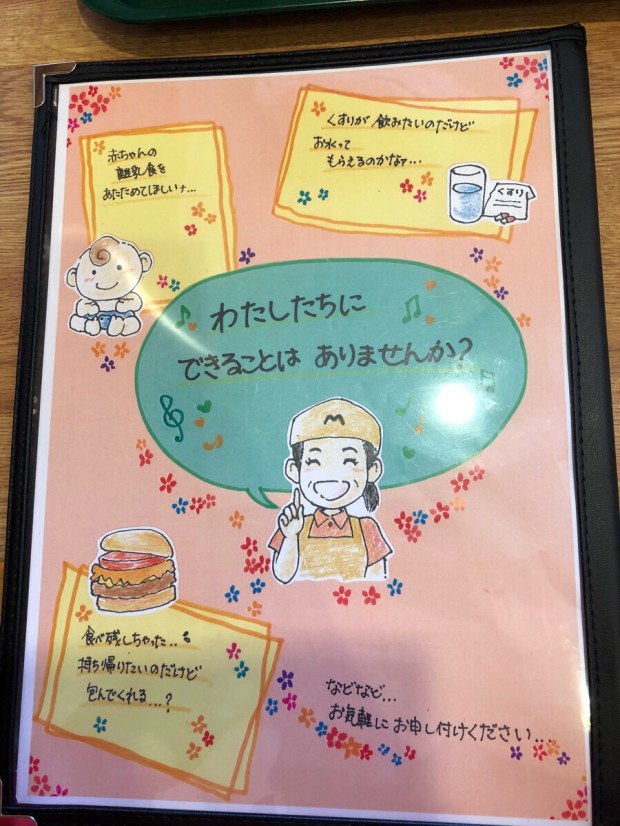 赤ちゃんの
離乳食を
あたためてほしいナ...
くすりが 飲みたいのだけど
お水って
もらえるのかなァ...
くすり
わたしたちに
できることは ありませんか?
M
食べ残しちゃった...。
持ち帰りたいのだけど
包んでくれる...?
などなど...
お気軽に お申し付けください...